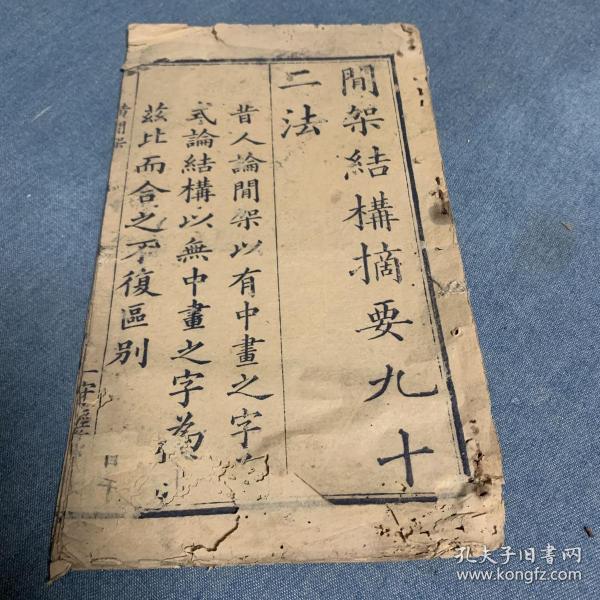 間架結構摘要九十
二法
昔人論間架以有中畫之字為
式論結構以無中畫之字為
茲比而合之不復區別
孔夫子旧书网
www.kongfz.com